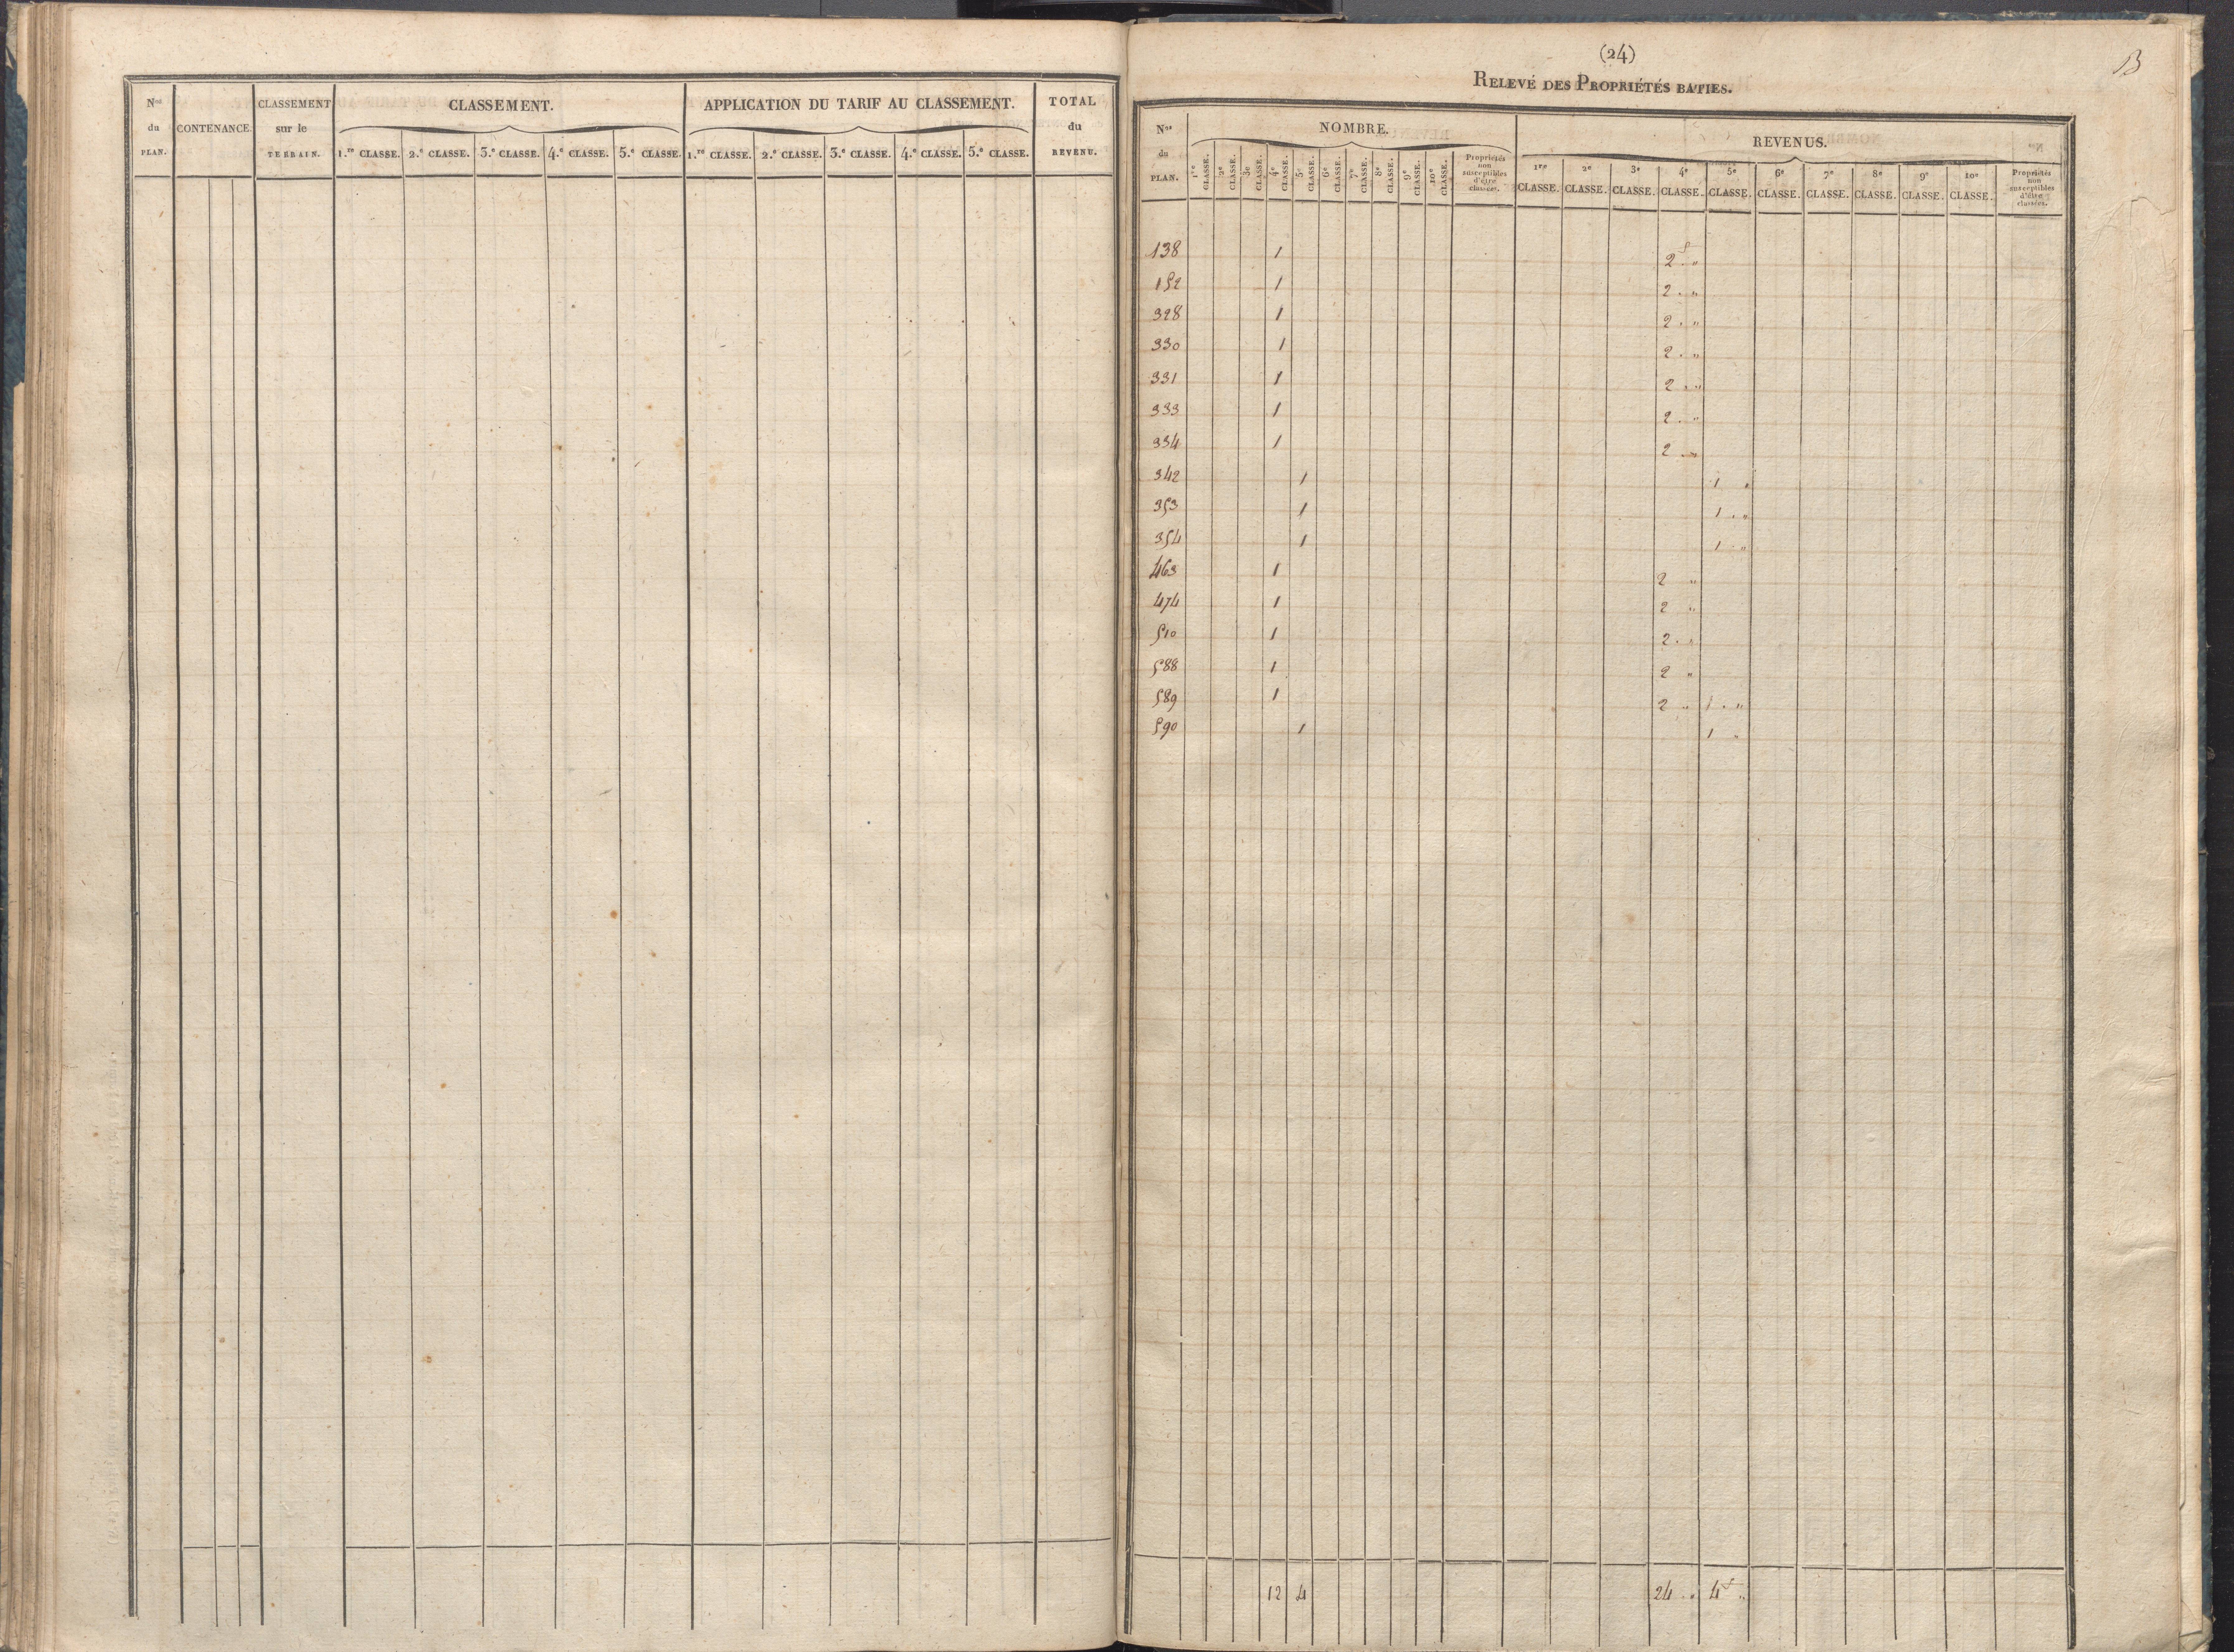 Nos du PLAN. CONTENANCE. CLASSEMENT sur le TERRAIN. CLASSEMENT. APPLICATION DU TARIF AU CLASSEMENT. TOTAL du REVENU.
1.re CLASSE. 2.e CLASSE. 3.e CLASSE. 4.e CLASSE. 5.e CLASSE. 1.re CLASSE. 2.e CLASSE. 3.e CLASSE. 4.e CLASSE. 5.e CLASSE.
(24)
B
RELEVÉ DES PROPRIÉTÉS BATIES.
Nos du PLAN. NOMBRE. REVENUS.
1re CLASSE. 2e CLASSE. 3e CLASSE. 4e CLASSE. 5e CLASSE. 6e CLASSE. 7e CLASSE. 8e CLASSE. 9e CLASSE. 10e CLASSE. Propriétés non susceptibles d'être classées. 1re CLASSE. 2e CLASSE. 3e CLASSE. 4e CLASSE. 5e CLASSE. 6e CLASSE. 7e CLASSE. 8e CLASSE. 9e CLASSE. 10e CLASSE. Propriétés non susceptibles d'être classées.
138 1 2f . "
152 1 2 . "
328 1 2 . "
330 1 2 . "
331 1 2 . "
333 1 2 . "
334 1 2 . "
342 1 1 "
353 1 1 . "
354 1 1 . "
463 1 2 "
474 1 2 "
510 1 2 . "
588 1 2 "
589 1 2 " 1 . "
590 1 1 "
12 4 24 . " 4f "